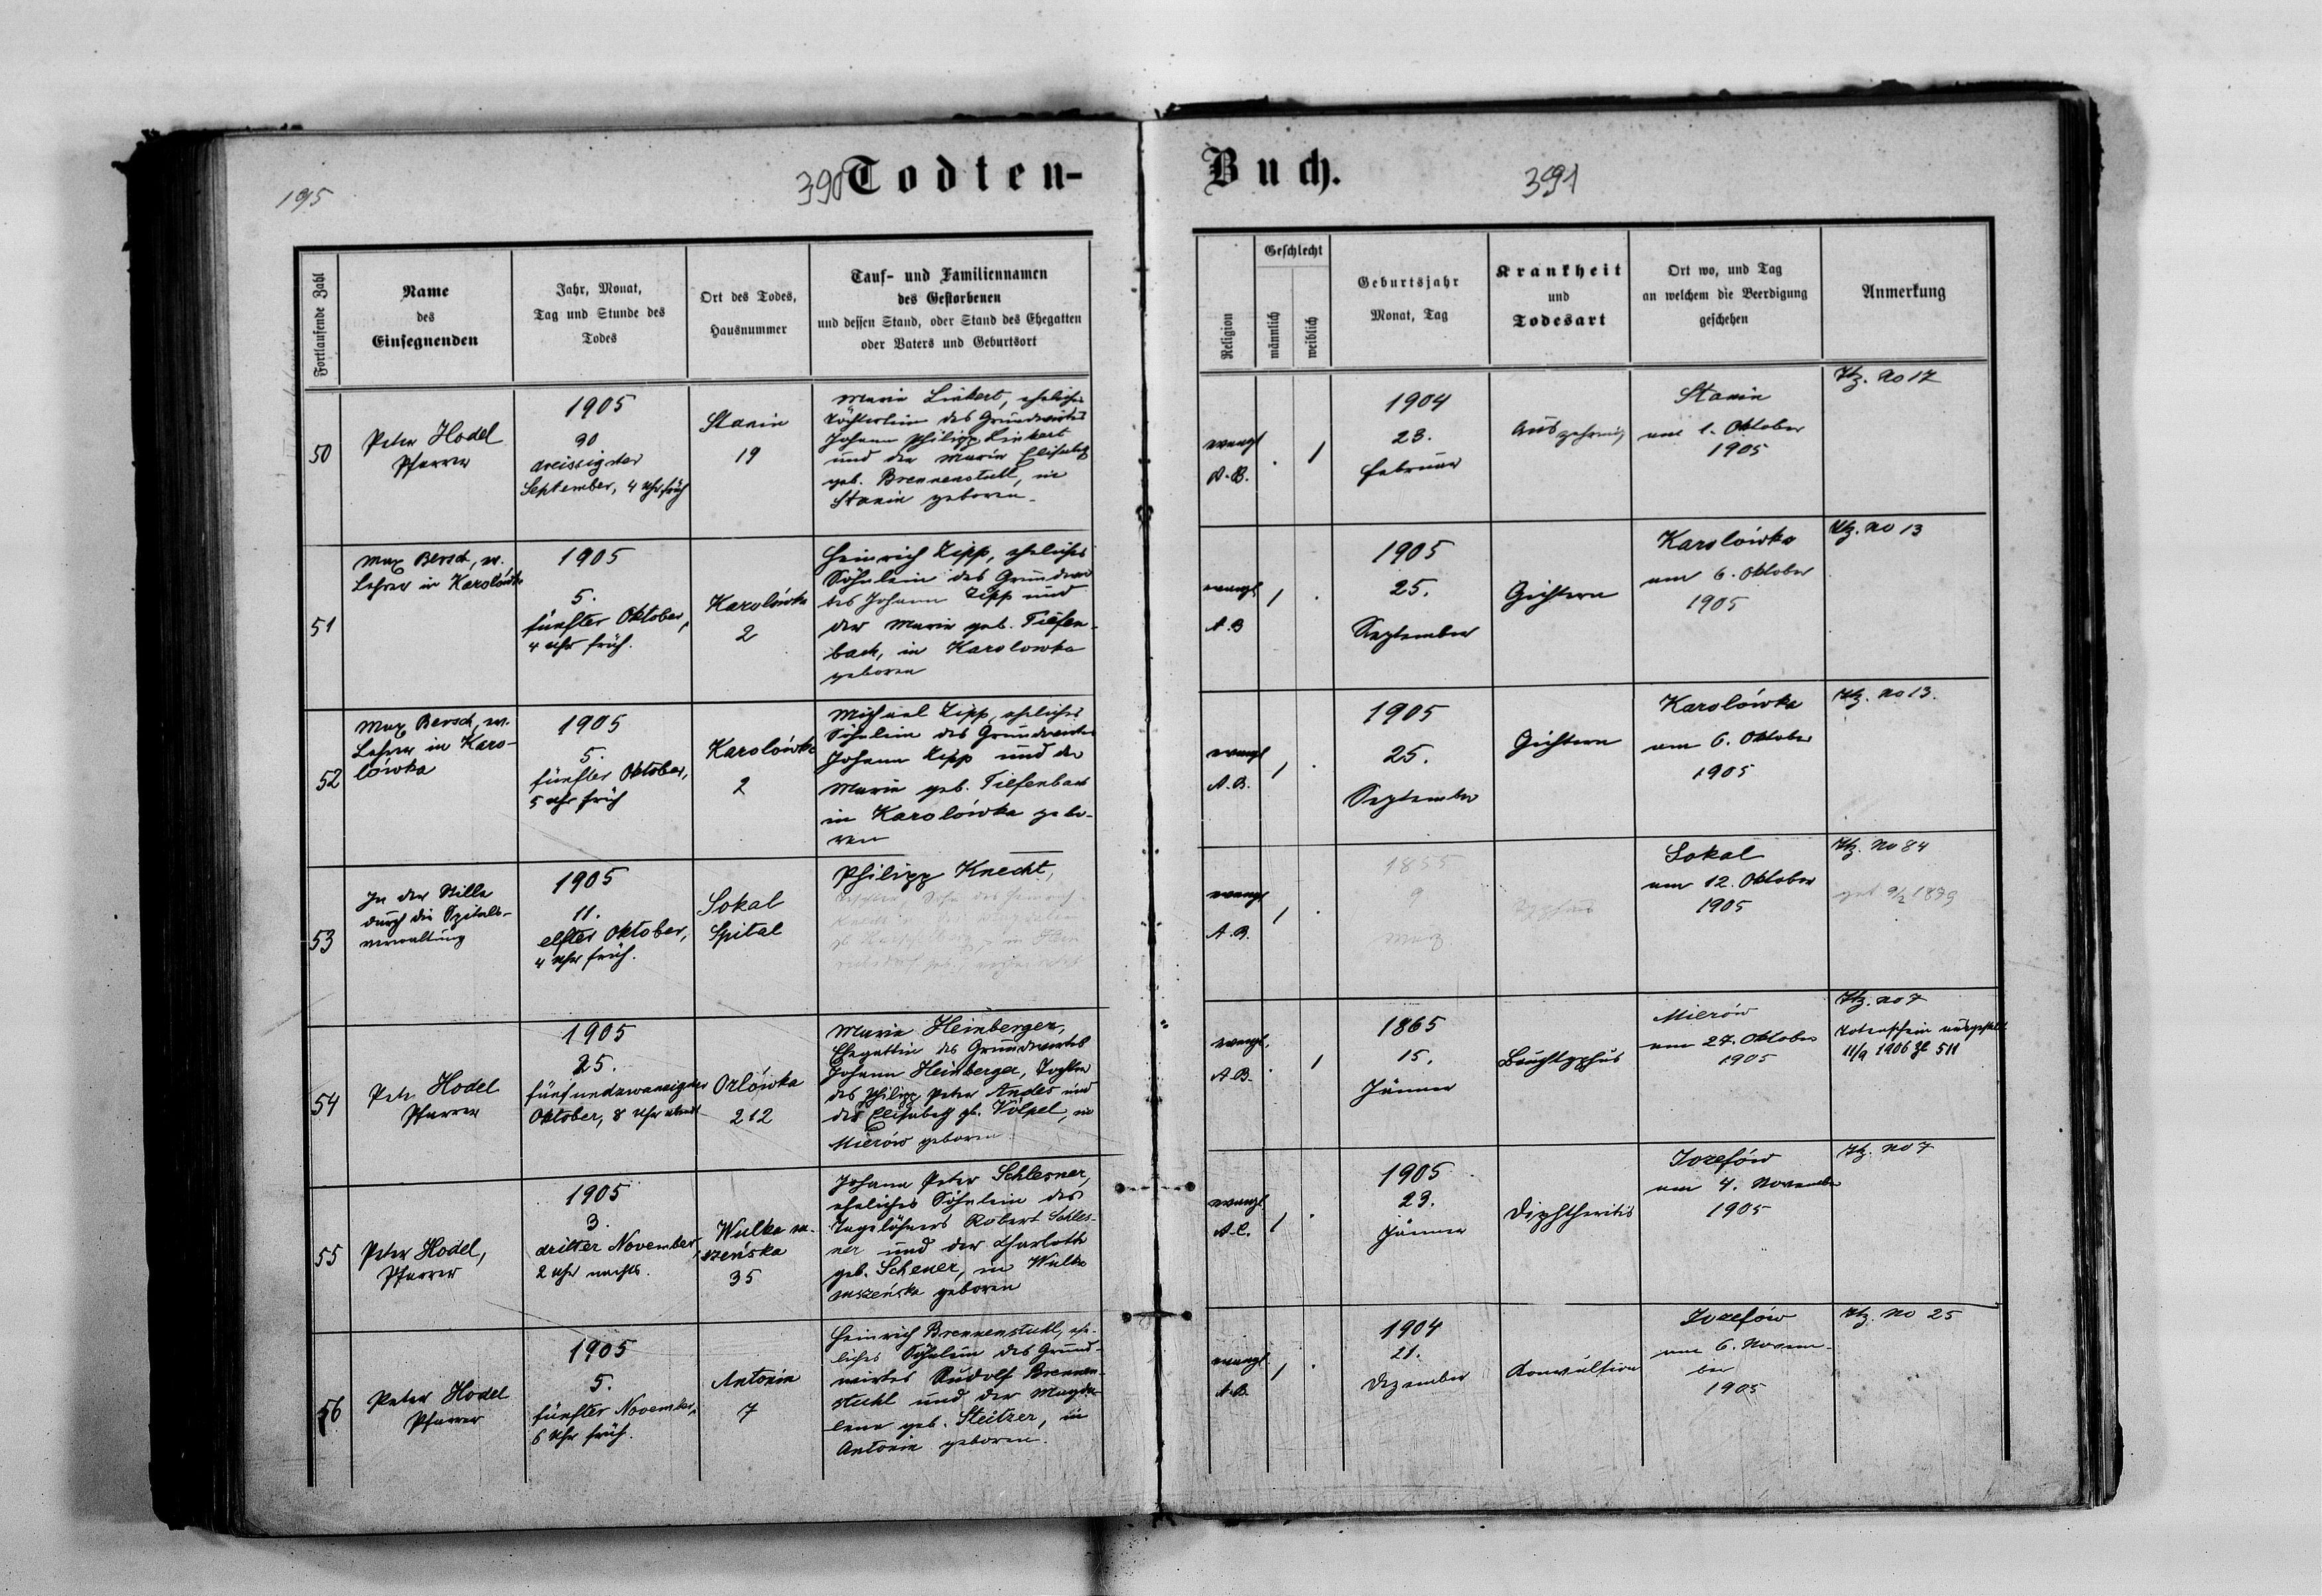 195
390 Todten-
Buch. 391
Fortlaufende Zahl
Name
des
Einsegnenden
Jahr, Monat,
Tag und Stunde des
Todes
Ort des Todes,
Hausnummer
Tauf- und Familiennamen
des Gestorbenen
und dessen Stand, oder Stand des Ehegatten
oder Vaters und Geburtsort
Religion
Geschlecht
männlich
weiblich
Geburtsjahr
Monat, Tag
Krankheit
und
Todesart
Ort wo, und Tag
an welchem die Beerdigung
geschehen
Anmerkung
50
Peter Hodel
Pfarrer
1905
30
dreissigster
September, 4 Uhr früh
Stanin
19
Maria Linkert, eheliches
Töchterlein des Grundwirtes
Johann Philipp Linkert
und der Maria Elisabeth
geb. Brennenstuhl, in
Stanin geboren.
evangl
A.B.
. 1
1904
23.
Februar
Auszehrung
Stanin
am 1. Oktober
1905
Hz. No 17
51
Max Bersch, ev.
Lehrer in Karolówka
1905
5.
fünfter Oktober,
4 Uhr früh.
Karolówka
2
Heinrich Zipp, eheliches
Söhnlein des Grundwir
tes Johann Zipp und
der Maria geb. Tiefen-
bach, in Karolowka
geboren
evangl
A.B
1 .
1905
25.
September
Gichtern
Karolówka
am 6. Oktober
1905
Hz. No 13
52
Max Bersch, ev.
Lehrer in Karo-
lówka
1905
5.
fünfter Oktober,
5 Uhr früh
Karolówka
2
Michael Zipp, eheliches
Söhnlein des Grundwirtes
Johann Zipp und der
Maria geb. Tiefenbach
in Karolówka gebo-
ren
evangl
A.B.
1 .
1905
25.
September
Gichtern
Karolówka
am 6. Oktober
1905
Hz. No 13.
53
In der Stille
durch die Spitals-
verwaltung
1905
11.
elfter Oktober,
4 Uhr früh.
Sokal
Spital
Philipp Knecht,
Sohn des Heinrich
evangl
A.B.
1 .
1855
9
März
Typhus
Sokal
am 12. Oktober
1905
Hz. No 84
geb 9/2 1879
54
Peter Hodel
Pfarrer
1905
25.
fünfundzwanzigster
Oktober, 8 Uhr abends
Orlówka
212
Maria Heinberger,
Ehegattin des Grundwirtes
Johann Heinberger, Tochter
des Philipp Peter Andes und
der Elisabeth gb. Völpel, in
Mierów geboren.
evangl.
A.B.
. 1
1865
15.
Jänner
Bauchtyphus
Mierów
am 27. Oktober
1905
Hz. No 7
Totenschein ausgestellt
11/9 1906 Zl 511
55
Peter Hodel,
Pfarrer
1905
3.
dritter November,
2 Uhr nachts.
Wulka ma-
szeńska
35
Johann Peter Schlesner,
eheliches Söhnlein des
Tagelöhners Robert Schles-
ner und der Charlotte
geb. Scheuer, in Wulka
maszeńska geboren
evangl
A.C.
1 .
1905
23.
Jänner
Diphtheritis
Jozefów
am 4. November
1905
Hz. No 7
56
Peter Hodel
Pfarrer
1905
5.
fünfter November,
6 Uhr früh.
Antonin
7
Heinrich Brennenstuhl, ehe-
liches Söhnlein des Grund-
wirtes Rudolf Brennen-
stuhl und der Magda-
lena geb. Steitzer, in
Antonin geboren.
evangl
A.B.
1 .
1904
21.
Dezember
Konvulsion
Jozefów
am 6. Novem-
ber
1905
Hz. No 25